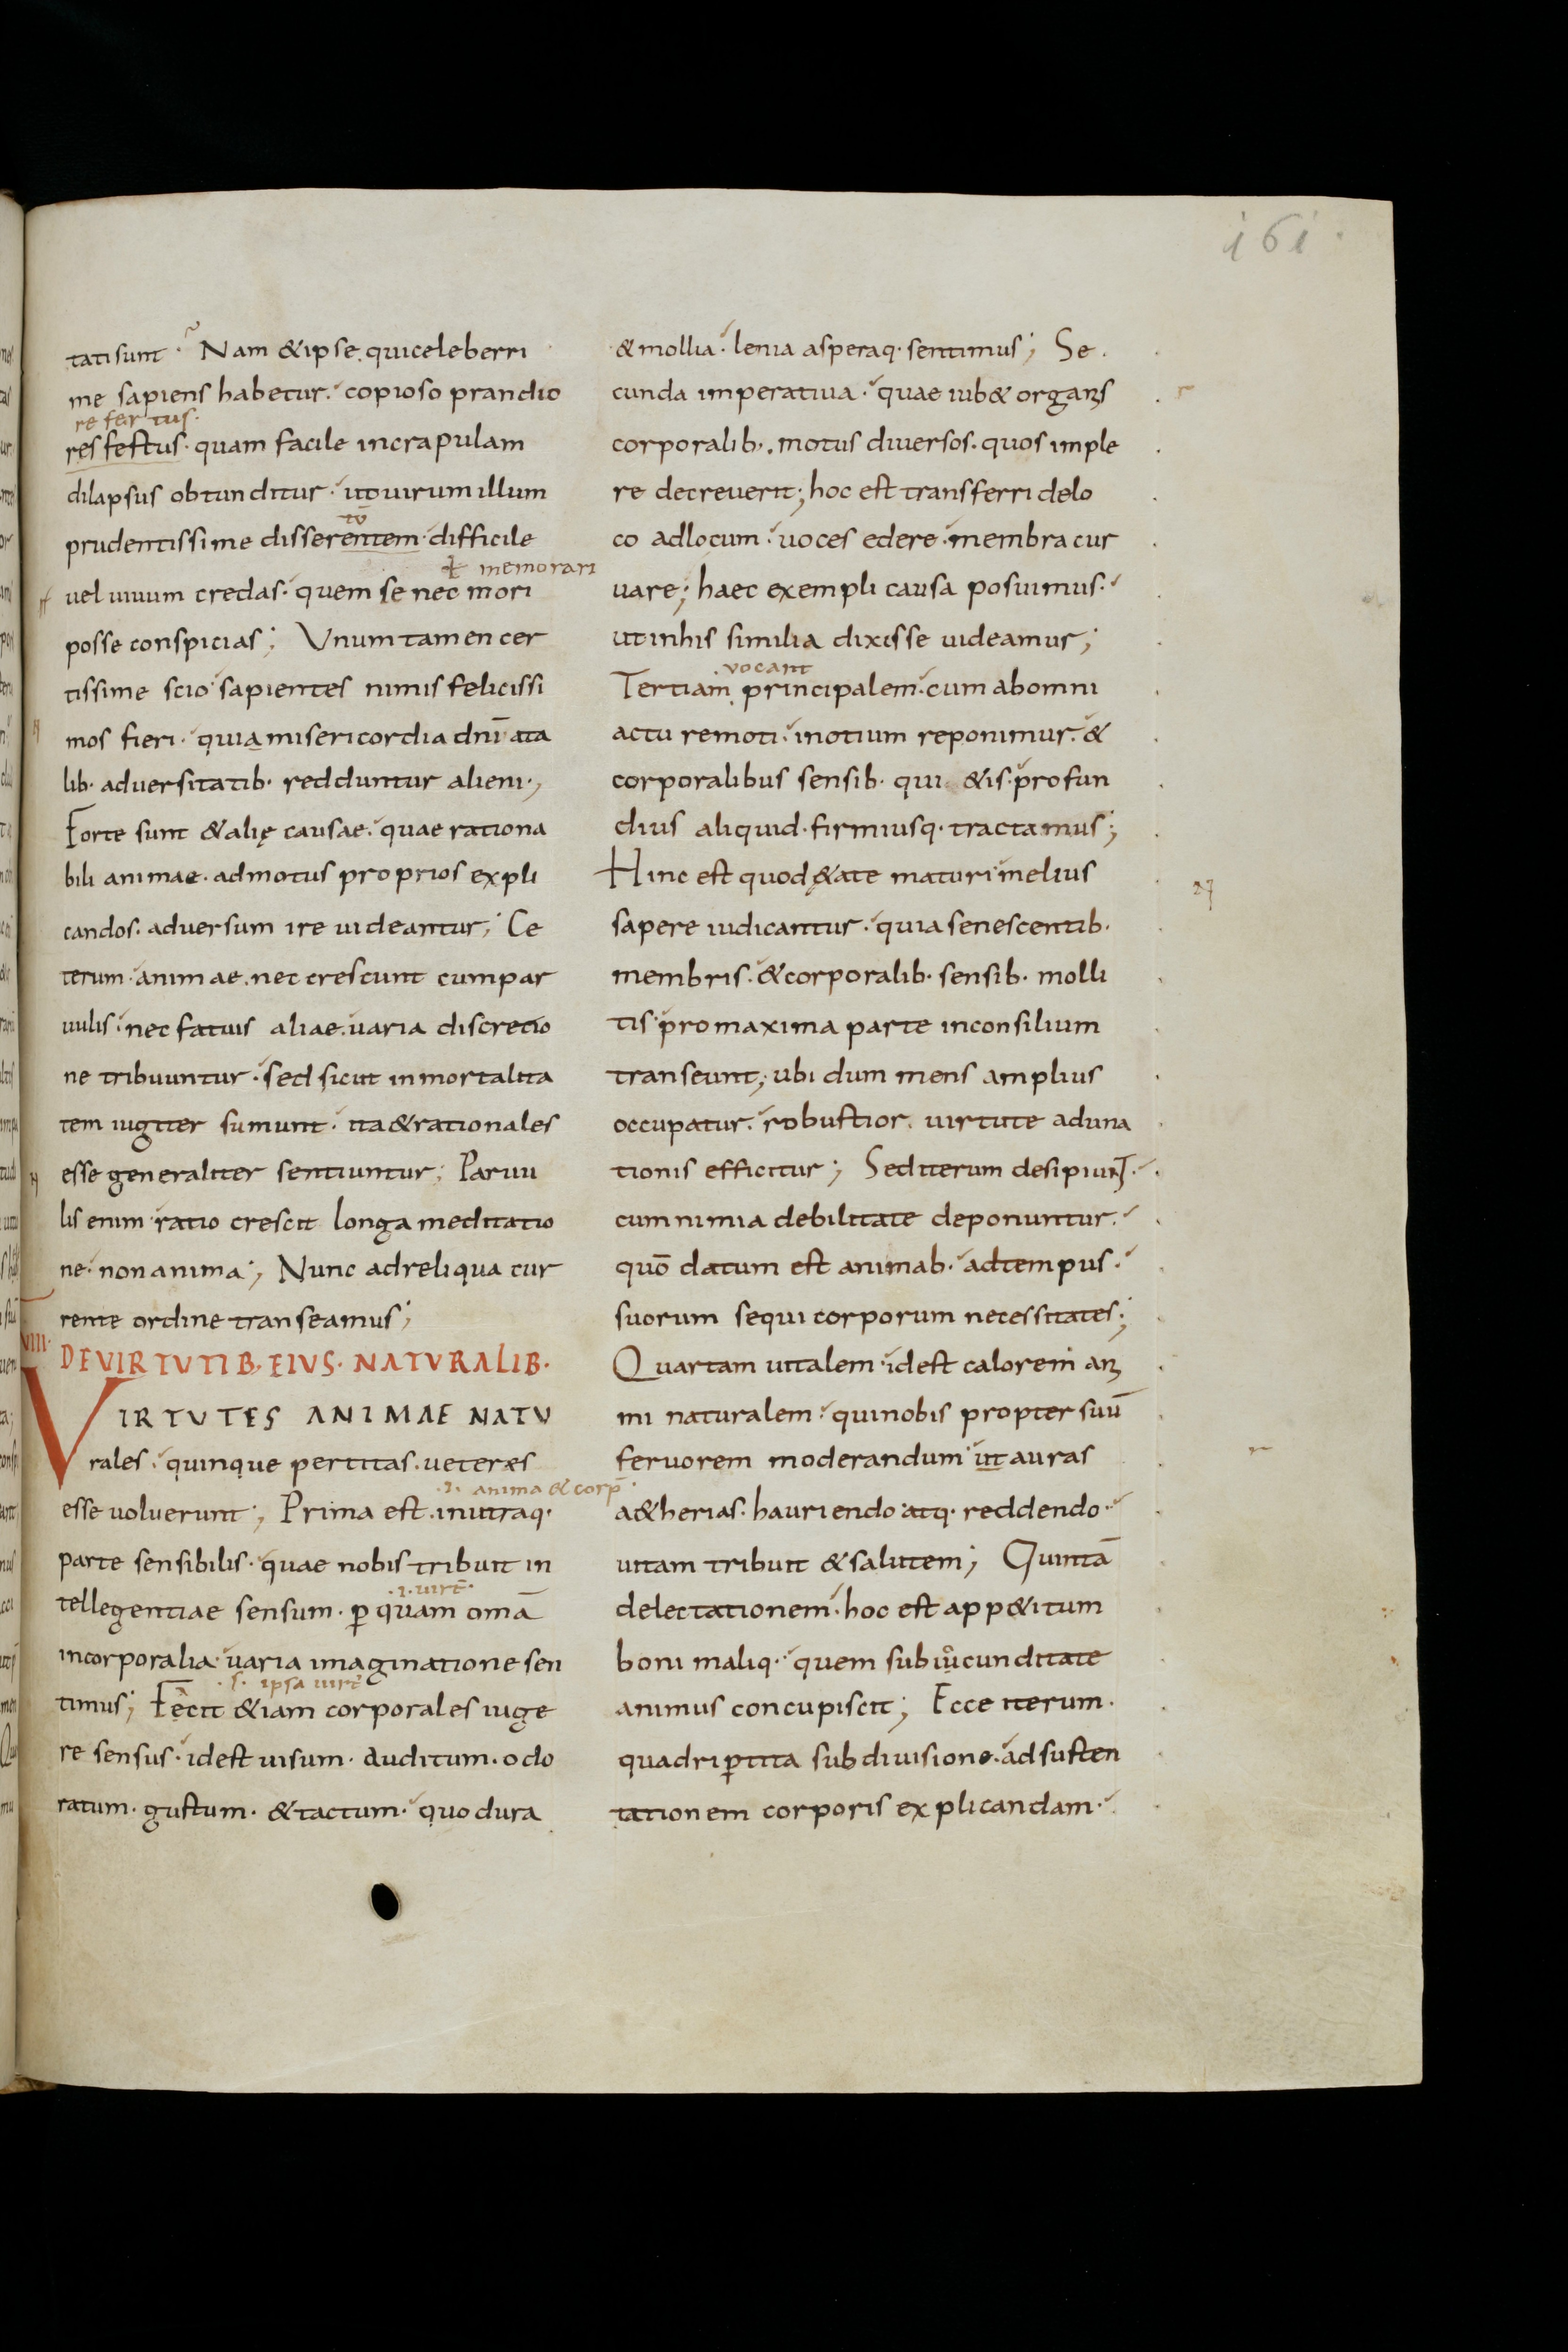 161.
tati sunt. Nam & ipse. qui celeberri
me sapiens habetur. copioso prandio
refertus.
resfectus. quam facile in crapulam
dilapsus obtunditur. ut o uirum illum
prudentissime disserentem. difficile
memorari
uel uiuum credas. quem se nec mori
posse conspicias; Vnum tamen cer
tissime scio sapientes nimis felicissi
mos fieri. quia misericordia dnī a ta
lib. aduersitatib. redduntur alieni.;
Forte sunt & alię causae. quae rationa
bili animae. ad motus proprios expli
candos. aduersum ire uideantur; Ce
terum. animae. nec crescunt cum par
uulis. nec fatuis aliae. uaria discretio
ne tribuuntur. sed sicut inmortalita
tem iugiter sumunt. ita & rationales
esse generaliter sentiuntur; Paruu
lis enim ratio crescit longa meditatio
ne. non anima; Nunc ad reliqua cur
rente ordine transeamus;
VIIII. DE VIRTVTIB. EIVS. NATVRALIB.
VIRTVTES ANIMAE NATV
rales. quinque pertitas. ueteres
.i. anima & corp̄.
esse uoluerunt; Prima est. in utraq.
parte sensibilis. quae nobis tribuit in
.i. uirt̄.
tellegentiae sensum. ꝑ quam omā
incorporalia. uaria imaginatione sen
.s. ipsa uirt̄
timus; Fecit & iam corporales iuge
re sensus. id est uisum. auditum. odo
ratum. gustum. & tactum. quo dura
& mollia. lenia asperaq. sentimus; Se
cunda imperatiua. quae iub& organis
corporalib.. motus diuersos. quos imple
re decreuerit; hoc est transferri de lo
co ad locum. uoces edere. membra cur
uare; haec exempli causa posuimus.
ut in his similia dixisse uideamus;
vocant
Tertiam principalem. cum ab omni
actu remoti. in otium reponimur. &
corporalibus sensib. qui &is. profun
dius aliquid. firmiusq. tractamus;
Hinc est quod &ate maturi melius
sapere iudicantur. quia senescentib.
membris. & corporalib. sensib. molli
tis pro maxima parte in consilium
transeunt; ubi dum mens amplius
occupatur. robustior. uirtute aduna
tionis efficitur; Sed iterum desipiunt.
cum nimia debilitate deponuntur.
quō datum est animab. ad tempus.
suorum sequi corporum necessitates;
Quartam uitalem. id est calorem ani
mi naturalem. qui nobis propter suū
feruorem moderandum ut auras
a&herias. hauriendo atq. reddendo.
uitam tribuit & salutem; Quintā
delectationem. hoc est app&itum
boni maliq. quem sub iucunditate
animus concupiscit; Ecce iterum.
quadriꝑtita subdiuisione. ad susten
tationem corporis explicandam.